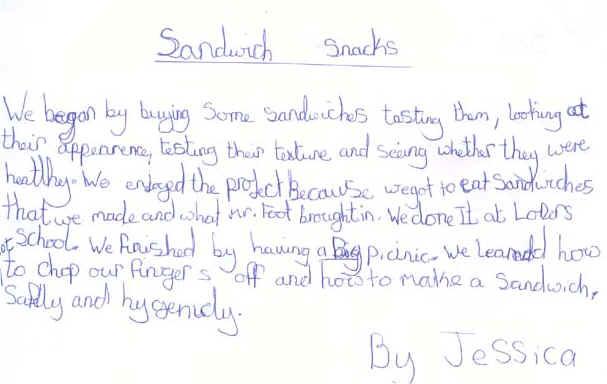 Sandwich Snacks
We began by buying Some sandwiches tasting them, looking at
their appearence, testing their texture and seeing whether they were
healthy. We enjoyed the project Because we got to eat Sandwiches
that we made and what mr. Foot brought in. We done It at
of School. We finished by having a Big picinic. We learned how
to chop our fingers off and how to make a Sandwich,
Safely and hygenicly.
By JeSSica